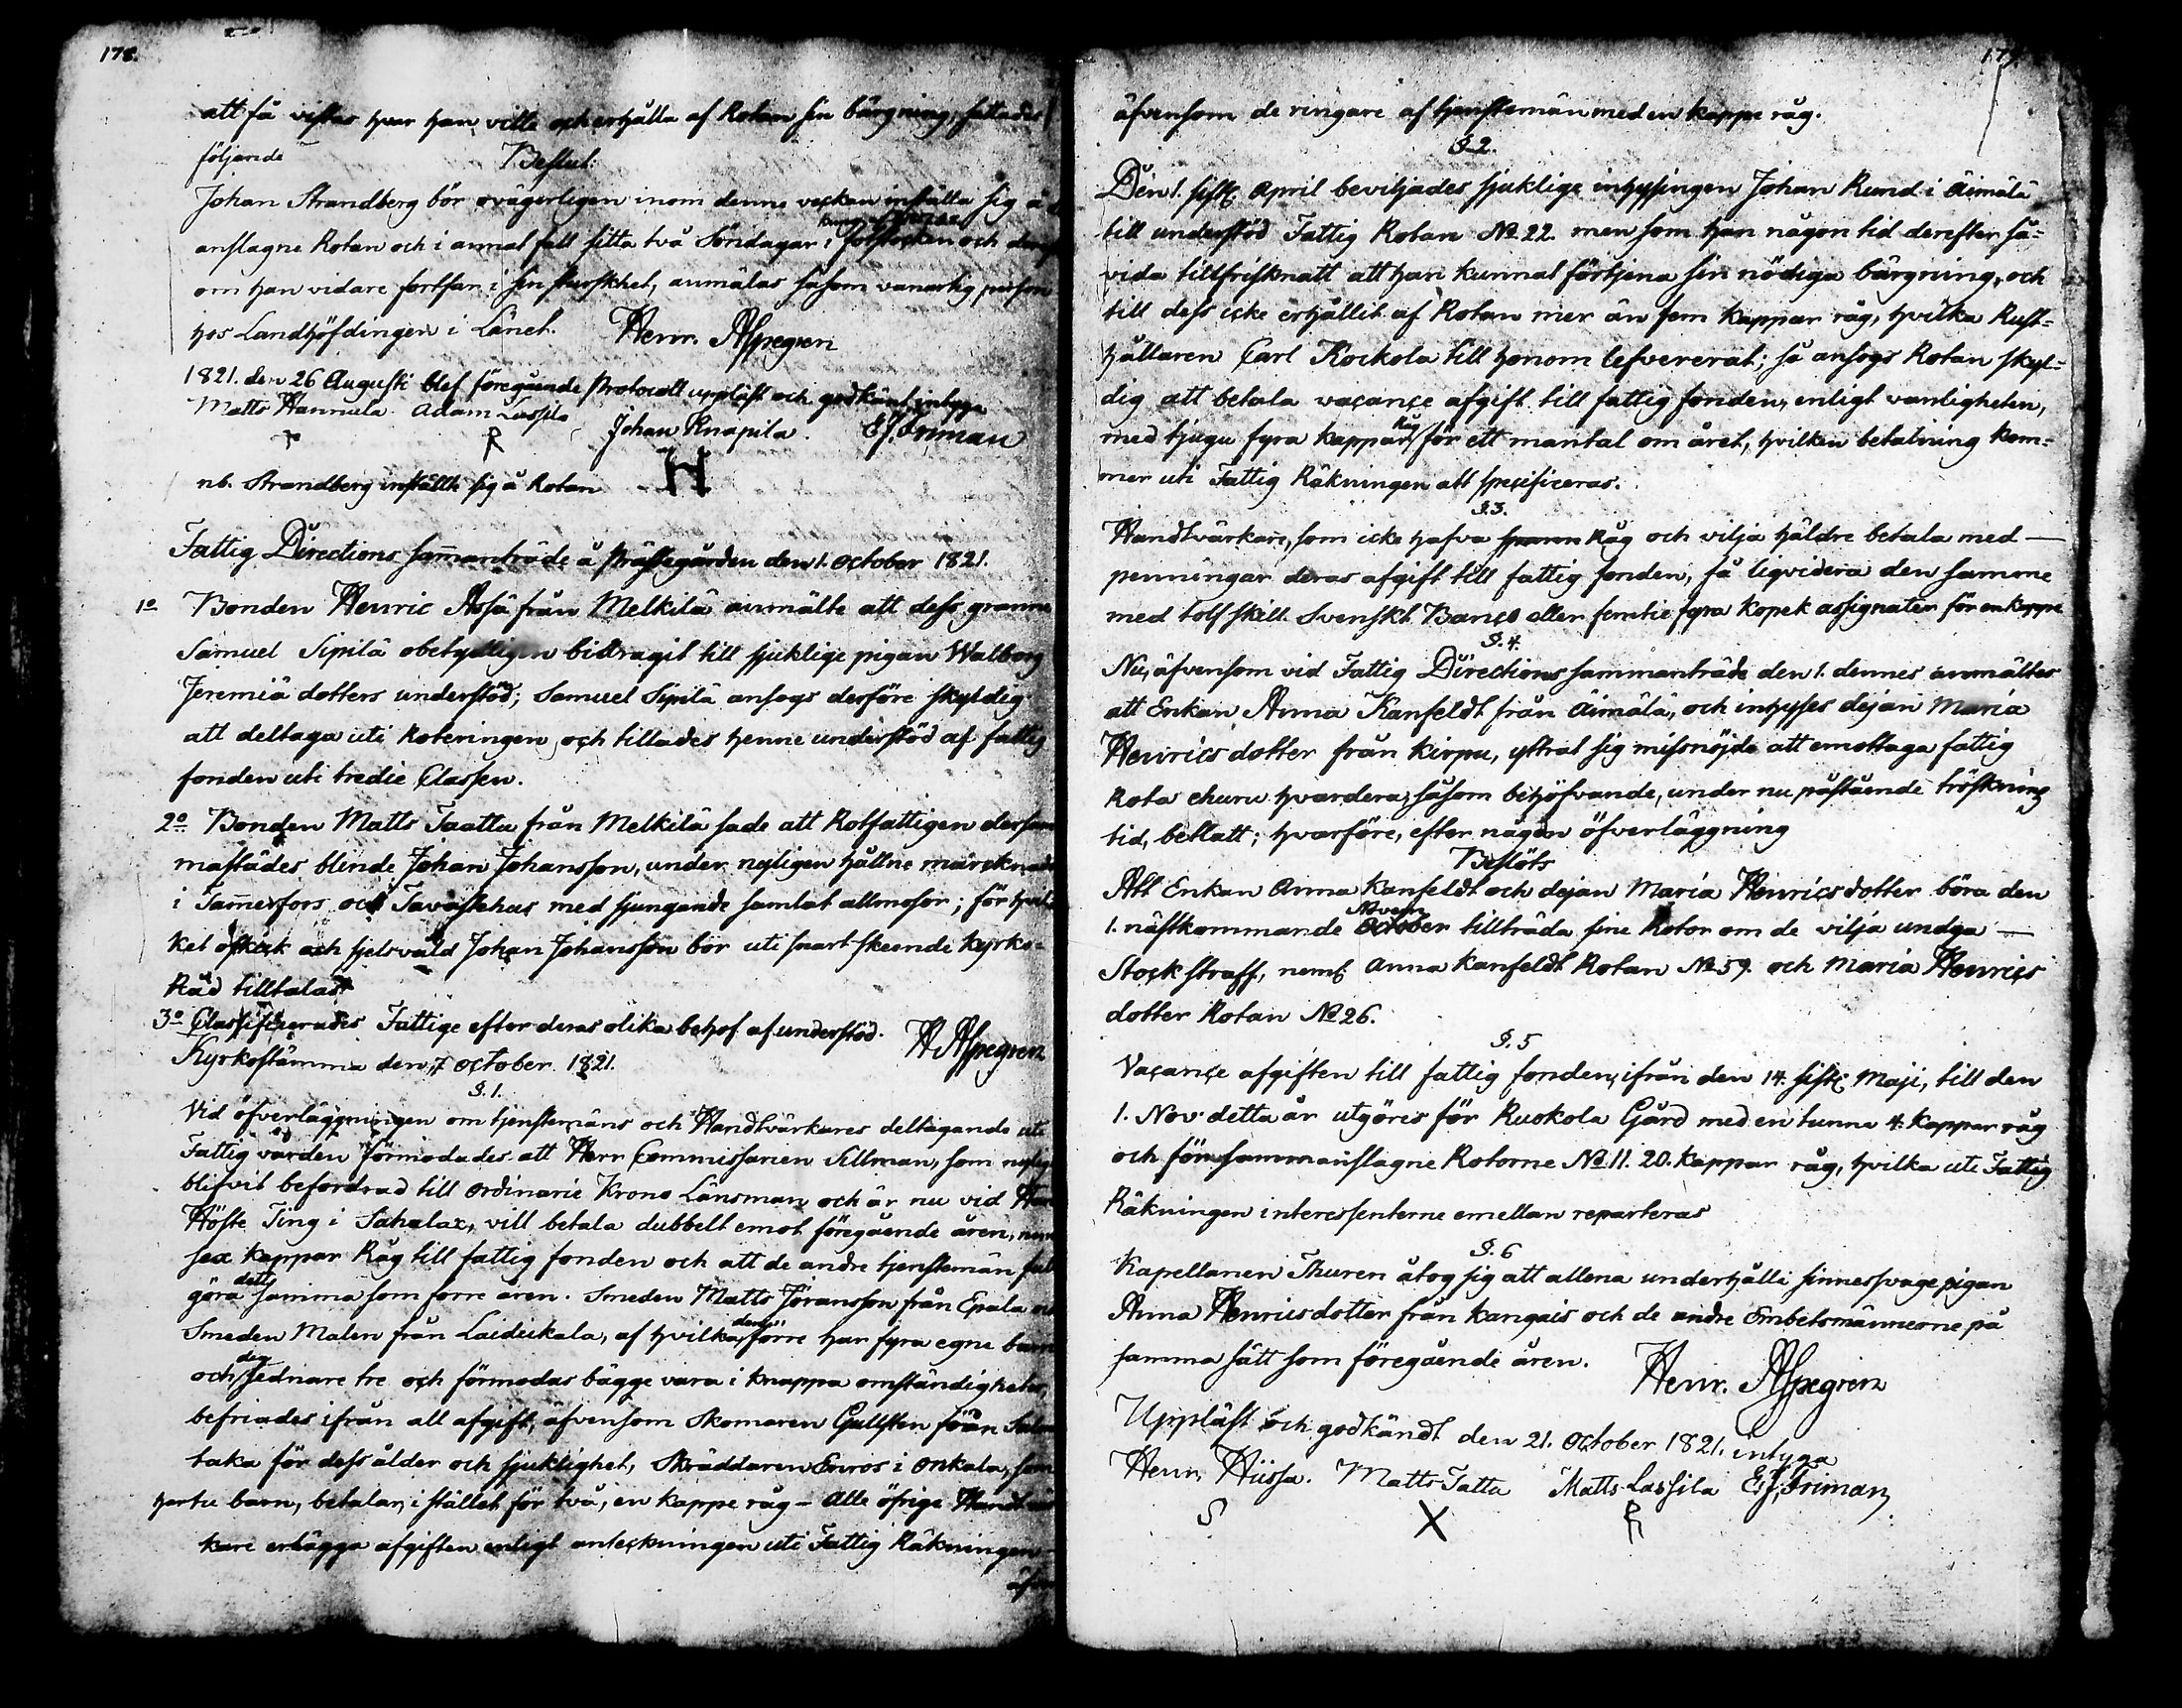 178.
att få vistas hvar han ville och erhålla af Rotan sin bärgning, fattades
följande Beslut:
Johan Strandberg bör ovägerligen inom denna veckan inställa sig å
anslagne Rotan och i annat fall sitta två Söndagar i Fotstocken och
om han vidare fortfar i sin sturskhet, anmälas såsom vanartig person
hos Landshöfdingen i Länet. Henr. Aspegren
1821. den 26 Augusti blef föregående Protocoll uppläst och godkänt, intyga
Matts Hannula. Adam Lassila Johan Knapila. E.J. Friman
nb. Strandberg inställte sig å Rotan H
Fattig Directions sammanträde å Prästegården den 1. October 1821.
1o Bonden Henric Assä från Melkilä anmälte att dess granne
Samuel Sipilä obetydligen bidragit till sjuklige pigan Walborg
Jeremiä dotters understöd; Samuel Sipilä ansogs derföre skyldig
att deltaga uti Roteringen, och tillades henne understöd af fattig
fonden uti tredie Classen.
2o Bonden Matts Taattu från Melkilä sade att Rotfattigen dersam
mastädes blinde Johan Johansson, under nyligen hållne marckna
i Tammerfors och Tavastehus med sjungande samlat allmosor; för hvil
ket oskick och sjelfsvåld Johan Johansson bör uti snart skeende Kyrko-
Råd tilltalas
3o Classificerades Fattige efter deras olika behof af understöd. H Aspegren
Kyrkostämma den 7 October 1821.
§. 1.
Vid öfverläggningen om tjenstemäns och Handtvärkares deltagande uti
Fattigvården förmodades att Herr Commissarien Sillman, som nylig
blifvit befordrad till ordinarie Krono Länsman och är nu vid
Höste Ting i Sahalax, vill betala dubbelt emot föregående åren,
sex kappar Råg till fattig fonden och att de andre tjenstemän
göra dett samma som förre åren. Smeden Matts Jöransson från Epala
Smeden Malen från Laidickala, af hvilka den förre har fyra egne barn
och den sednare tre och förmodas bägge vara i knappa omständigheter,
befriades ifrån all afgift, äfvensom Skomaren Gullsten från
taka för dess ålder och sjuklighet, Skräddaren Enros i Onkala, som
har tre barn, betalar, i stället för två, en kappe råg – Alle öfrige Handtvär
kare erlägga afgiften enligt anteckningen uti Fattig Räkningen
äfven
179.
äfvensom de ringare af tjenstemän med en kappe råg.
§ 2.
Den 1. sistl. April beviljades sjuklige inhysingen Johan Rund i Äimälä
till understöd Fattig Rotan No 22. men som han någon tid derefter så-
vida tillfrisknatt att han kunnat förtjena sin nödiga bärgning, och
till dess icke erhållit af Rotan mer än fem kappar råg, hvilka Rust-
hållaren Carl Kockola till honom lefvererat; så ansogs Rotan skyl-
dig att betala vacance afgift till fattig fonden, enligt vanligheten,
med tjugu fyra kappar råg för ett mantal om året, hvilken betalning kom-
mer uti Fattig Räkningen att specificeras.
§. 3.
Handtvärkare, som icke hafva Råg och vilja häldre betala med —
penningar deras afgift till fattig fonden, få liqvidera den samme
med tolf skill. Svenskt Banco eller femtie fyra Kopek assignater för en kappe
§. 4.
Nu, äfvensom vid Fattig Directions sammanträde den 1. dennes anmältes
att Enkan Anna Kanfeldt från Äimälä, och inhyses dejan Maria
Henrics dotter från Kirpu, yttrat sig missnöjde att emottaga fattig
Rota ehuru hvardera, såsom behöfvande, under nu påstående tröskning
tid, bettatt; hvarföre, efter någon öfverläggning
Beslöts
Att Enkan Anna Kanfeldt och dejan Maria Henricsdotter böra den
Novem
1. nästkommande October tillträda sine Rotor om de vilja undga —
Stockstraff, neml. Anna Kanfeldt Rotan No 59. och Maria Henrics
dotter Rotan No 26.
§. 5
Vacance afgiften till fattig fonden, ifrån den 14. sistl. Maji, till den
1. Nov. detta år utgöres för Ruokola Gård med en tunna 4. kappar råg
och för sammanslagne Rotorne No 11. 20. kappar råg, hvilka uti Fattig
Räkningen interessenterne emellan reparteras
§. 6
Kapellanen Thuren åtog sig att allena underhålla sinnessvage pigan
Anna Henricsdotter från Kangais och de andre Embetsmännerne på
samma sätt som föregående åren. Henr. Aspegren
Uppläst och godkändt den 21. October 1821. intyga
Henr. Hiissa. Matts Tatta Matts Lassila E.J. Friman